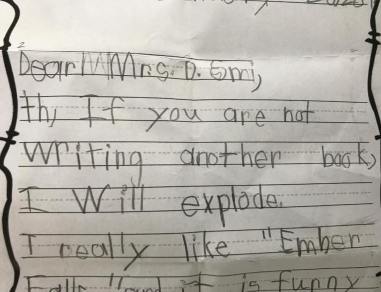 Dear Mrs. D. Smi,
th, If you are not
Writing another book,
I Will explode.
I really like "Ember
Falls" and it is funny